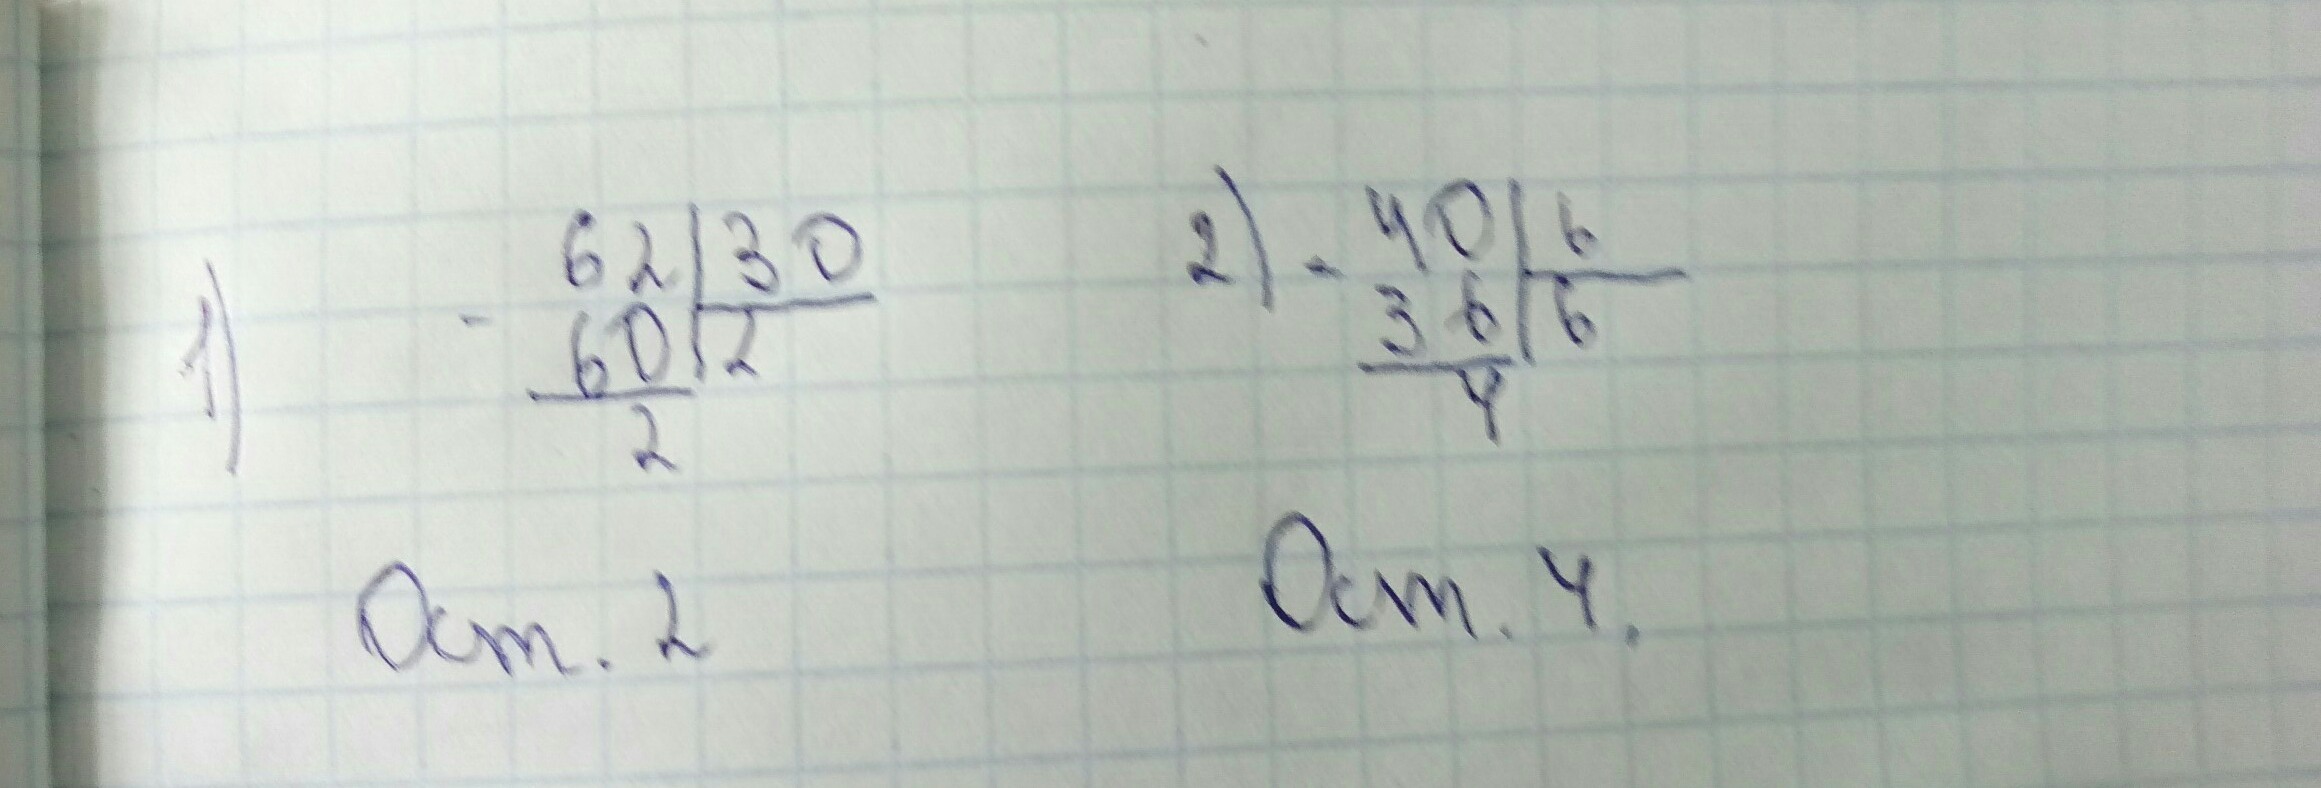 1) - 62 | 30
60 | 2
2
Ост. 2
2) - 40 | 6
36 | 6
4
Ост. 4.